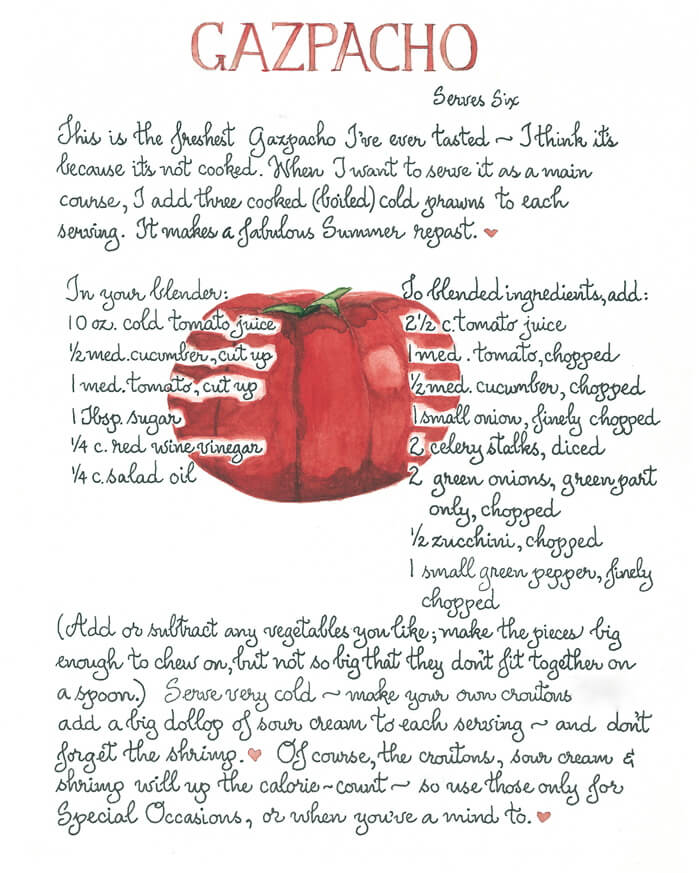 GAZPACHO
Serves Six
This is the freshest Gazpacho I've ever tasted ~ I think it's
because it's not cooked. When I want to serve it as a main
course, I add three cooked (boiled) cold prawns to each
serving. It makes a fabulous Summer repast. ♥
In your blender:
10 oz. cold tomato juice
½ med. cucumber, cut up
1 med. tomato, cut up
1 Tbsp. sugar
¼ c. red wine vinegar
¼ c. salad oil
To blended ingredients, add:
2½ c. tomato juice
1 med. tomato, chopped
½ med. cucumber, chopped
1 small onion, finely chopped
2 celery stalks, diced
2 green onions, green part
only, chopped
½ zucchini, chopped
1 small green pepper, finely
chopped
(Add or subtract any vegetables you like; make the pieces big
enough to chew on, but not so big that they don't fit together on
a spoon.) Serve very cold ~ make your own croutons
add a big dollop of sour cream to each serving ~ and don't
forget the shrimp. ♥ Of course, the croutons, sour cream &
shrimp will up the calorie~count ~ so use those only for
Special Occasions, or when you've a mind to. ♥